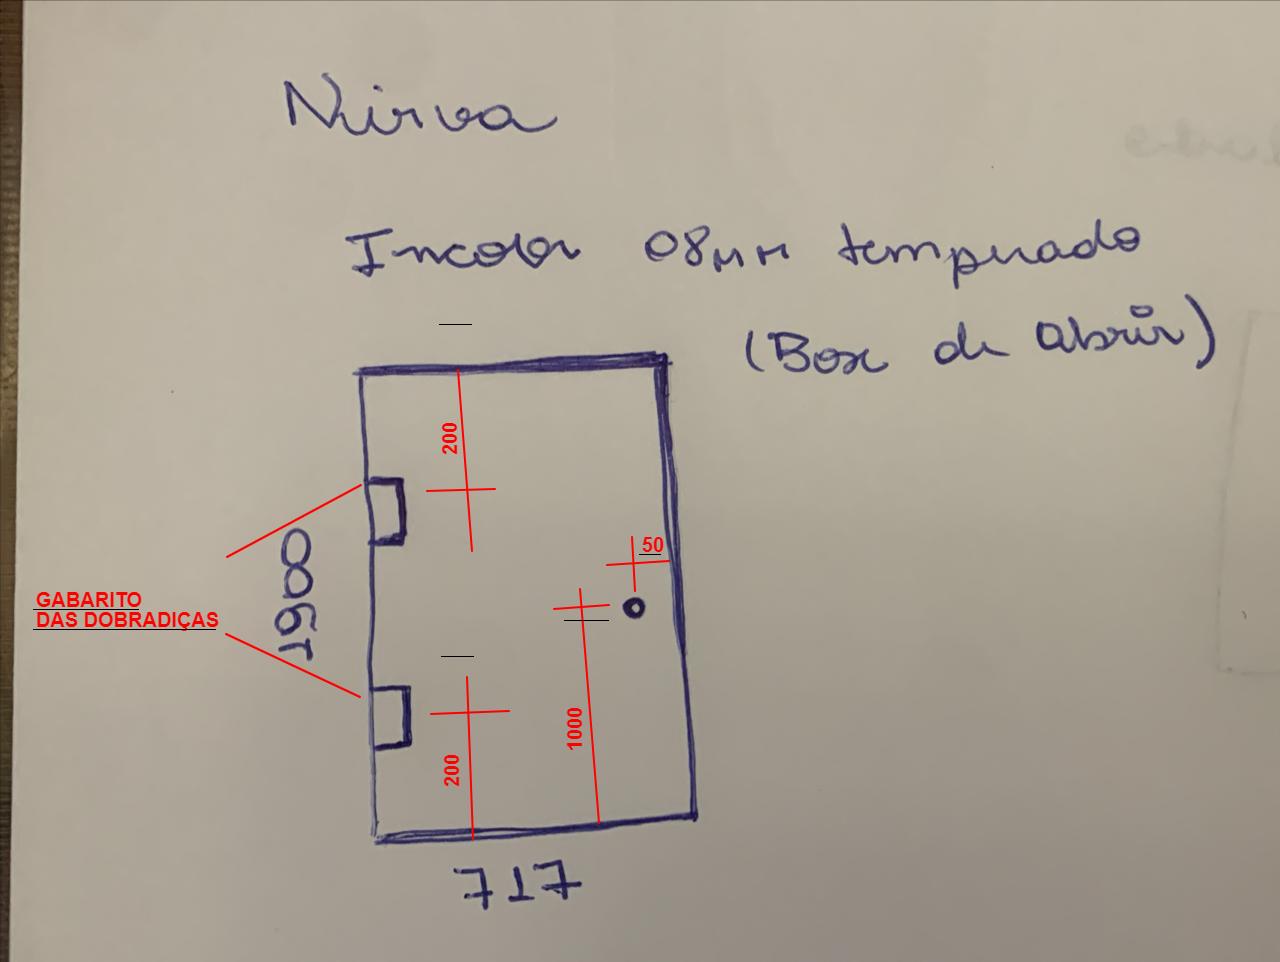 Nirva
Incolor 08MM temperado
(Box de abrir)
200
50
1900
GABARITO
DAS DOBRADIÇAS
1000
200
717